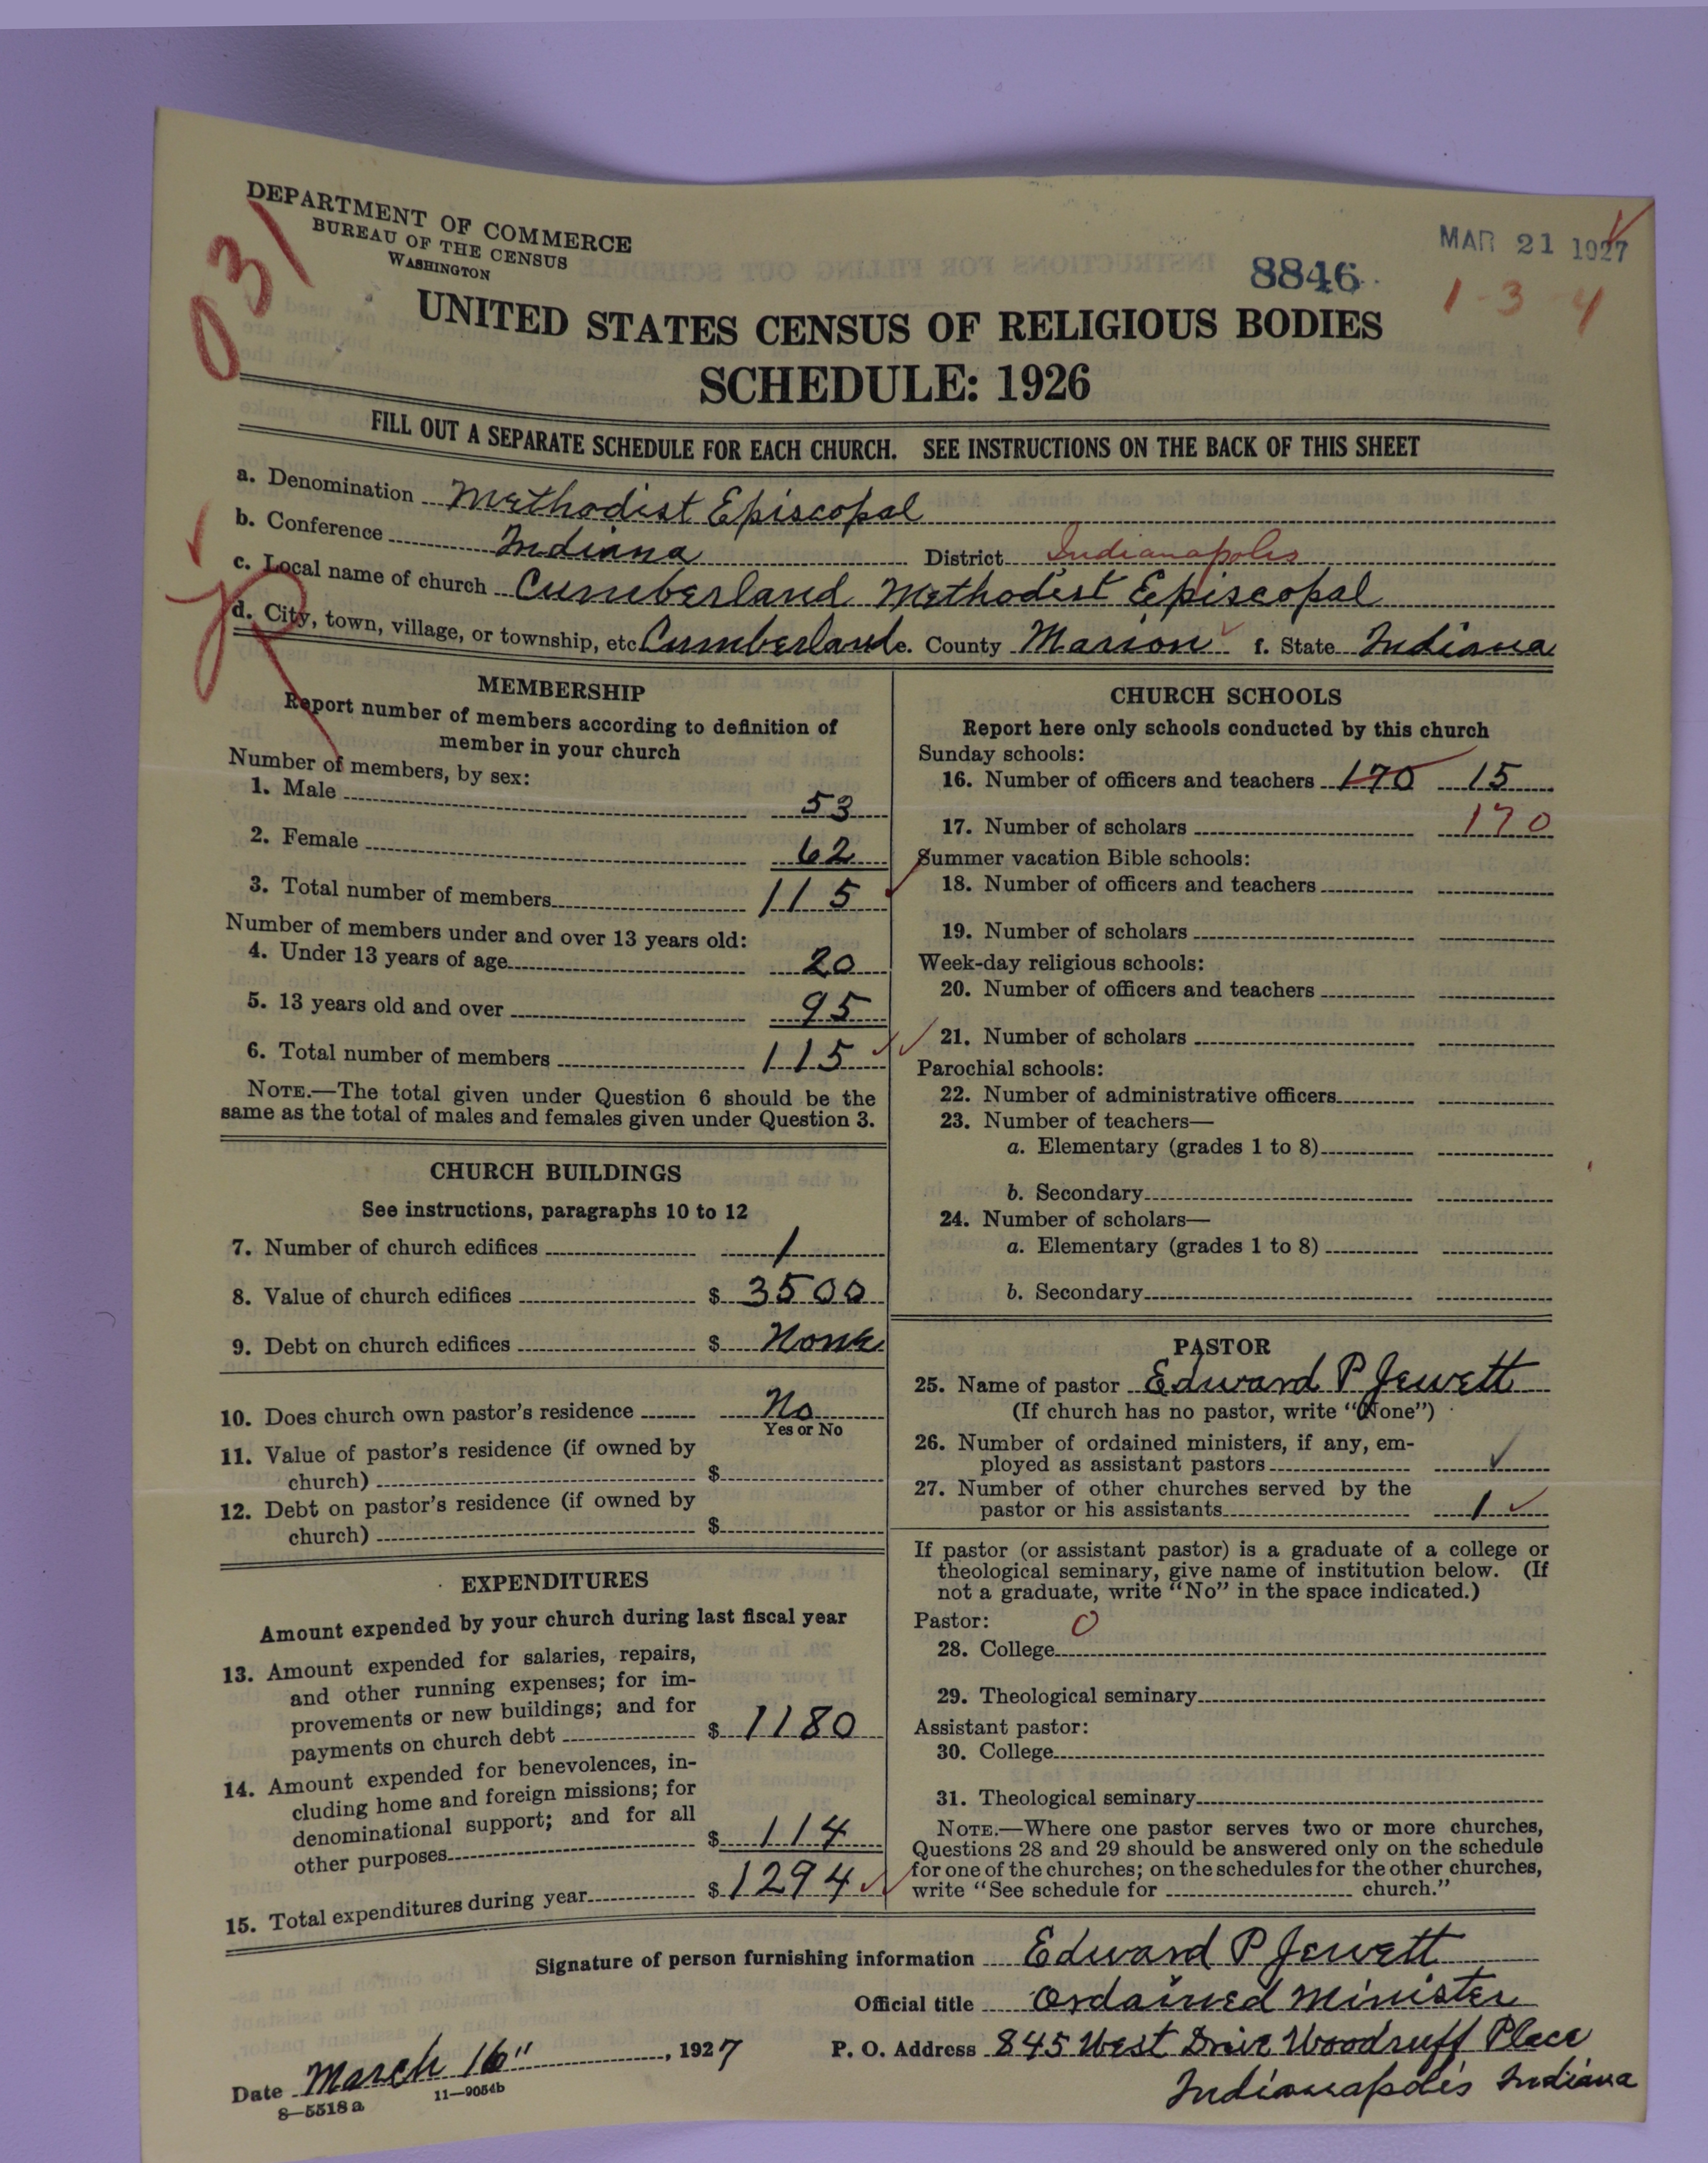 DEPARTMENT OF COMMERCE
BUREAU OF THE CENSUS
WASHINGTON
031
MAR 21 1927
8846
1-3-4
UNITED STATES CENSUS OF RELIGIOUS BODIES
SCHEDULE: 1926
FILL OUT A SEPARATE SCHEDULE FOR EACH CHURCH. SEE INSTRUCTIONS ON THE BACK OF THIS SHEET
a. Denomination Methodist Episcopal
b. Conference Indiana District Indianapolis
c. Local name of church Cumberland Methodist Episcopal
d. City, town, village, or township, etc Cumberland e. County Marion f. State Indiana
MEMBERSHIP
Report number of members according to definition of
member in your church
Number of members, by sex:
1. Male 53
2. Female 62
3. Total number of members 115
Number of members under and over 13 years old:
4. Under 13 years of age 20
5. 13 years old and over 95
6. Total number of members 115
NOTE.—The total given under Question 6 should be the
same as the total of males and females given under Question 3.
CHURCH BUILDINGS
See instructions, paragraphs 10 to 12
7. Number of church edifices 1
8. Value of church edifices $ 3500
9. Debt on church edifices $ None
10. Does church own pastor's residence No
Yes or No
11. Value of pastor's residence (if owned by
church) $
12. Debt on pastor's residence (if owned by
church) $
EXPENDITURES
Amount expended by your church during last fiscal year
13. Amount expended for salaries, repairs,
and other running expenses; for im-
provements or new buildings; and for
payments on church debt $ 1180
14. Amount expended for benevolences, in-
cluding home and foreign missions; for
denominational support; and for all
other purposes $ 114
15. Total expenditures during year $ 1294
CHURCH SCHOOLS
Report here only schools conducted by this church
Sunday schools:
16. Number of officers and teachers 170 15
17. Number of scholars 170
Summer vacation Bible schools:
18. Number of officers and teachers
19. Number of scholars
Week-day religious schools:
20. Number of officers and teachers
21. Number of scholars
Parochial schools:
22. Number of administrative officers
23. Number of teachers—
a. Elementary (grades 1 to 8)
b. Secondary
24. Number of scholars—
a. Elementary (grades 1 to 8)
b. Secondary
PASTOR
25. Name of pastor Edward P Jewett
(If church has no pastor, write "None")
26. Number of ordained ministers, if any, em-
ployed as assistant pastors ✓
27. Number of other churches served by the
pastor or his assistants 1 ✓
If pastor (or assistant pastor) is a graduate of a college or
theological seminary, give name of institution below. (If
not a graduate, write "No" in the space indicated.)
Pastor: 0
28. College
29. Theological seminary
Assistant pastor:
30. College
31. Theological seminary
NOTE.—Where one pastor serves two or more churches,
Questions 28 and 29 should be answered only on the schedule
for one of the churches; on the schedules for the other churches,
write "See schedule for church."
Signature of person furnishing information Edward P Jewett
Official title Ordained Minister
Date March 16", 1927 P. O. Address 845 West Drive Woodruff Place
Indianapolis Indiana
8—5518 a 11—9054b